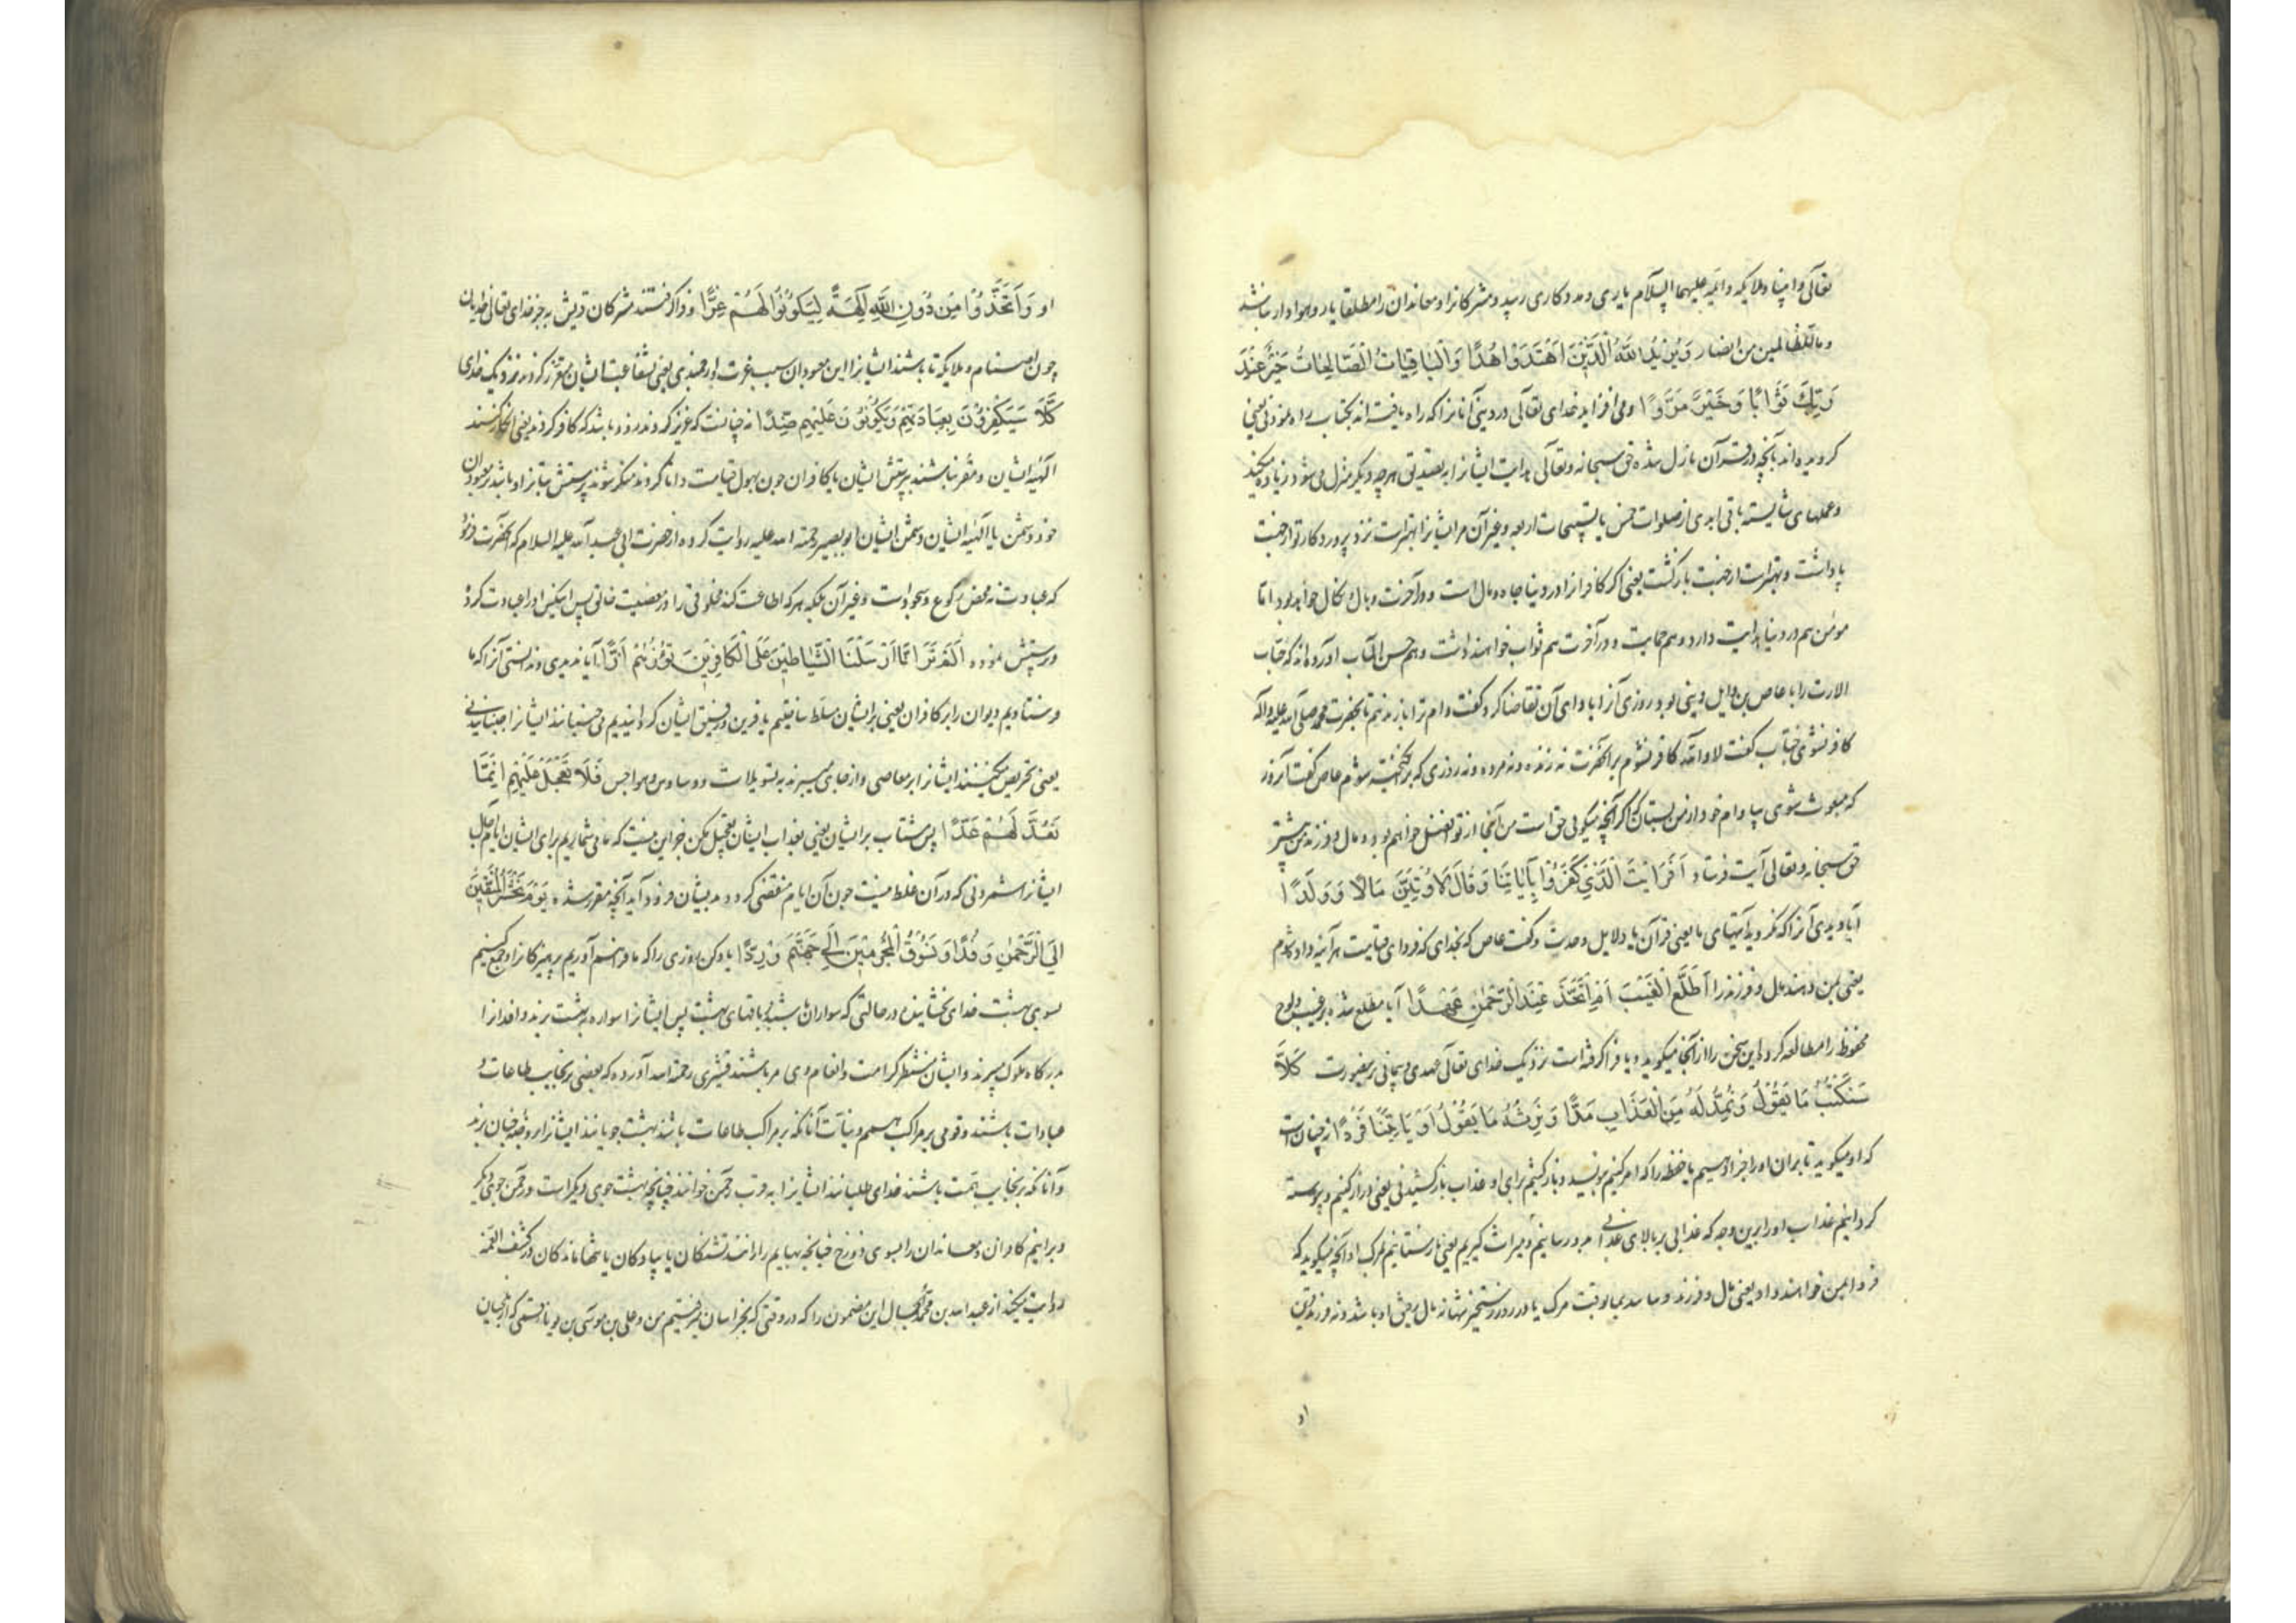 تعالی و انبیا و ملایکه و ائمه علیهما السلام یاری و مددکاری رسید و مشرکانرا و معاندان را مطلقا یار و هوادار نباشد
وما للظالمین من انصار وَيَزِيدُ اللَّهُ الَّذِينَ اهْتَدَوْا هُدًا وَالْبَاقِيَاتُ الصَّالِحَاتُ خَيْرٌ عِنْدَ
رَبِّكَ ثَوَابًا وَخَيْرٌ مَرَدًّا و می افزاید خدای تعالی در دینی آنانرا که راه یافته اند بکتاب راه نمودنی یعنی
گرویده اند بآنچه در قرآن نازل شده حق سبحانه و تعالی هدایت ایشانرا به تصدیق هر چه دیگر منزل می شود زیاده میکند
و عملهای شایسته باقی ابدی از صلوات خمس یا تسبیحات اربعه و غیر آن مر ایشانرا بهتر است نزد پروردگار تو از جهت
پاداشت و بهتر است از جهت بازگشت یعنی اگر کافرانرا در دنیا جاه و مال است و در آخرت وبال و نکال خواهد بود اما
مؤمن هم در دنیا هدایت دارد و هم حمایت و در آخرت هم ثواب خواهند داشت و هم حسن المآب آورده اند که خبّاب
الارت را با عاص بن وایل دینی بود روزی آنرا با وای آن تقاضا کرد و گفت وام ترا باز ندهم تا بحضرت محمد صلی الله علیه و آله
کافر نشوی خبّاب گفت لا والله کافر نشوم بر آنحضرت نه زنده و نه مرده و نه روزی که برانگیخته شوم عاص گفت آنروز
که مبعوث شوی بیا و وام خود از من بستان که اگر آنچه میگویی حق است من آنجا از تو افضل خواهم بود و مال و فرزند من بیشتر
حق سبحانه و تعالی آیت فرستاد أَفَرَأَيْتَ الَّذِي كَفَرُوا بِآيَاتِنَا وَقَالَ لَأُوتَيَنَّ مَالًا وَوَلَدًا
آیا دیدی آنرا که نگروید بآیتهای ما یعنی قرآن یا دلایل وحدت و گفت عاص که بخدای که فردای قیامت هر آینه داده شوم
یعنی بمن دهند مال و فرزند را أَطَّلَعَ الْغَيْبَ أَمِ اتَّخَذَ عِنْدَ الرَّحْمَنِ عَهْدًا آیا مطلع شده بر غیب و لوح
محفوظ را مطالعه کرد و این سخن را از آنجا میگوید و یا فرا گرفته است نزدیک خدای تعالی عهدی و پیمانی بر اینصورت كَلَّا
سَنَكْتُبُ مَا يَقُولُ وَنَمُدُّ لَهُ مِنَ الْعَذَابِ مَدًّا وَنَرِثُهُ مَا يَقُولُ وَيَأْتِينَا فَرْدًا نه چنان است
که او میگوید تا بران او را جزا دهیم یا حفظه را که امر کنیم بنویسید و باز کشیم برای او عذاب باز کشیدنی یعنی دراز کنیم و پیوسته
گردانیم عذاب او را برین وجه که عذابی بر بالای عذابی بدو رسانیم و میراث گیریم یعنی باز ستانیم بمرگ او آنچه میگوید که
فردا بمن خواهند داد یعنی مال و فرزند و بیاید بما بوقت مرگ یا در روز رستخیز تنها نه مال معین او باشد و نه فرزند قرین
او
او وَاتَّخَذُوا مِن دُونِ اللَّهِ آلِهَةً لِيَكُونُوا لَهُمْ عِزًّا و فرا گرفتند مشرکان قریش به جز خدای تعالی خدایان
چون اصنام و ملایکه تا باشند ایشانرا این معبودان سبب عزت و ارجمندی یعنی بشفاعت ایشان معزز گردند نزدیک خدای
كَلَّا سَيَكْفُرُونَ بِعِبَادَتِهِمْ وَيَكُونُونَ عَلَيْهِمْ ضِدًّا نه چنانست که عزیز گردند زود باشد که کافر گردند یعنی انکار کنند
آلهه ایشان و مقر نباشند بپرستش ایشان یا کافران چون بهول قیامت دانا گردند منکر شوند پرستش بتانرا و باشد معبودان
خود دشمن یا آلهه ایشان دشمن ایشان ابو بصیر رحمة الله علیه روایت کرده از حضرت ابی عبد الله علیه السلام که آنحضرت فرمود
که عبادت نه محض رکوع و سجود است و غیر آن بلکه هر که اطاعت کند مخلوقی را در معصیت خالق پس آنکس او را عبادت کرده
و پرستش نموده أَلَمْ تَرَ أَنَّا أَرْسَلْنَا الشَّيَاطِينَ عَلَى الْكَافِرِينَ تَؤُزُّهُمْ أَزًّا آیا ندیدی و ندانستی آنرا که ما
فرستادیم دیوان را بر کافران یعنی بر ایشان مسلط ساختیم یا قرین و رفیق ایشان گردانیدیم می جنبانند ایشانرا جنبانیدنی
یعنی تحریص میکنند ایشانرا بر معاصی و از جای میبرند به تسویلات و وساوس و هواجس فَلَا تَعْجَلْ عَلَيْهِمْ إِنَّمَا
نَعُدُّ لَهُمْ عَدًّا پس مشتاب بر ایشان یعنی بعذاب ایشان تعجیل مکن جز این نیست که ما می شماریم برای ایشان ایام آجال
ایشانرا شمردنی که در آن غلط نیست چون آن ایام منقضی گردد بدیشان فرود آید آنچه مقرر شده يَوْمَ نَحْشُرُ الْمُتَّقِينَ
إِلَى الرَّحْمَٰنِ وَفْدًا وَنَسُوقُ الْمُجْرِمِينَ إِلَى جَهَنَّمَ وِرْدًا یاد کن روزی را که ما فراهم آوریم پرهیزکانرا و جمع کنیم
بسوی بهشت خدای بخشاینده در حالتی که سواران باشند بر ناقهای بهشت پس ایشانرا سواره به بهشت برند و افدانرا
بدرگاه ملوک میبرند و ایشان منتظر کرامت و انعام وی مر باشند قشیری رحمه الله آورده که بعضی بر نجایب طاعات و
عبادات باشند و قومی بر مراکب همم و نیّات آنانکه بر مراکب طاعات باشند بهشت جویانند ایشانرا بروضه جنان برند
و آنانکه بر نجایب همّت باشند خدای طلبانند ایشانرا به قرب رحمن خوانند چنانچه بهشت جوی دیگر است و رحمن جوی دیگر
و برانیم کافران و معاندان را بسوی دوزخ چنانچه بهایم را رانند تشنگان یا پیادگان یا تنها ماندگان در کشف الغمّه
روایت میکند از عبد الله بن محمد این مضمون را که در وقتی که بخراسان میرفتیم من و علی بن موسی بن